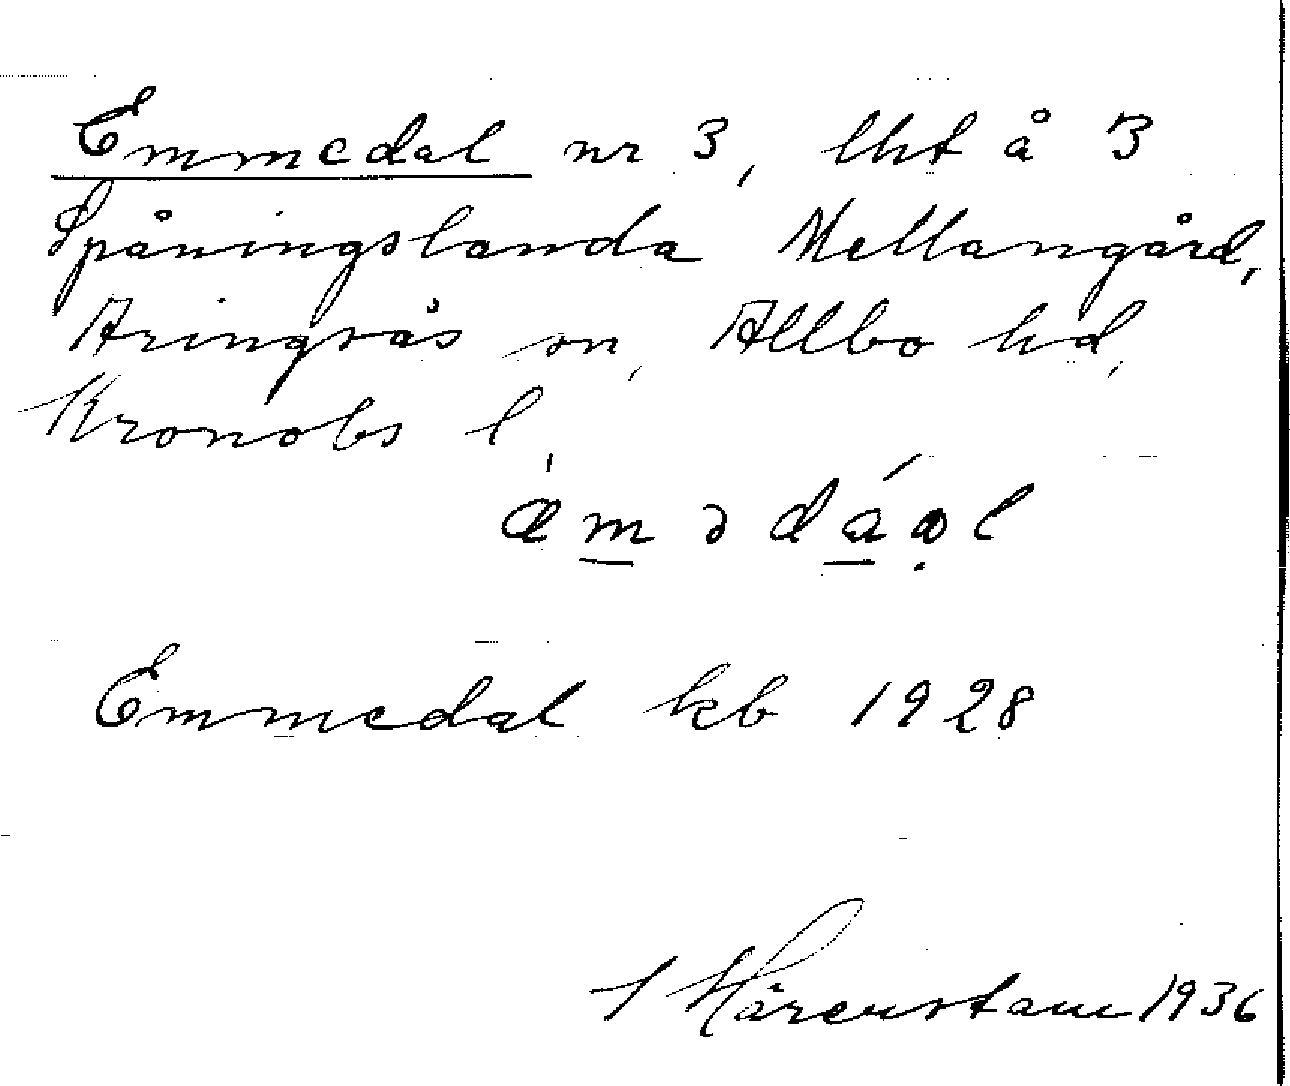 Emmedal nr 3, lht å 3
Spåningslanda Mellangård,
Aringsås sn, Allbo hd,
Kronobs l.
æ̀mədáɑl
Emmedal kb 1928
Hårenstam 1936